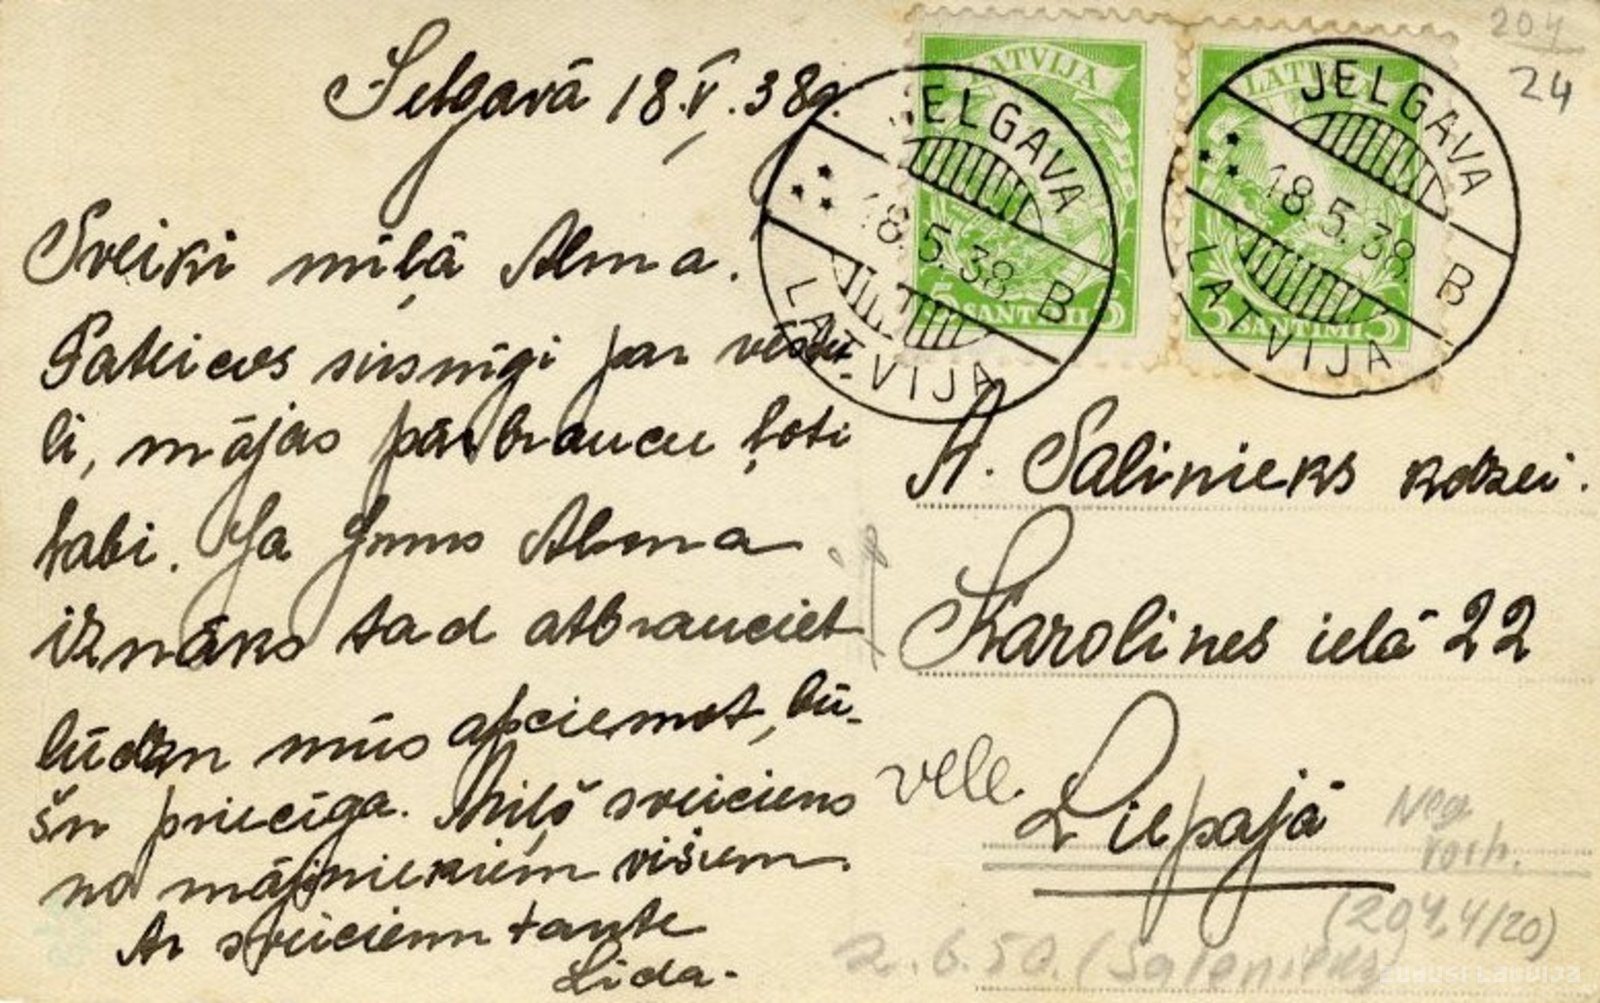 Jelgavā 18.V.38g.
Sveiki mīļā Alma.
Pateicos sirsnīgi par vēstu-
li, mājas pārbraucu ļoti
labi. Ja Jums Alma
iznāks tad atbrauciet
lūdzu mūs apciemot, bū-
šu priecīga. Mīļš sveiciens
no mājiniekiem višiem.
Ar sveicienu tante
Lida.
LATVIJA
5 SANTIMI 5
ELGAVA
18.5.38 B
LATVIJA
LATVIJA
5 SANTIMI 5
JELGAVA
18.5.38. B
LATVIJA
204
24
A. Salinieks kdzei.
Karolines ielā 22
vele
Liepājā
Neg
(204.4/20)
2.6.50.
ZUDUSI LATVIJA